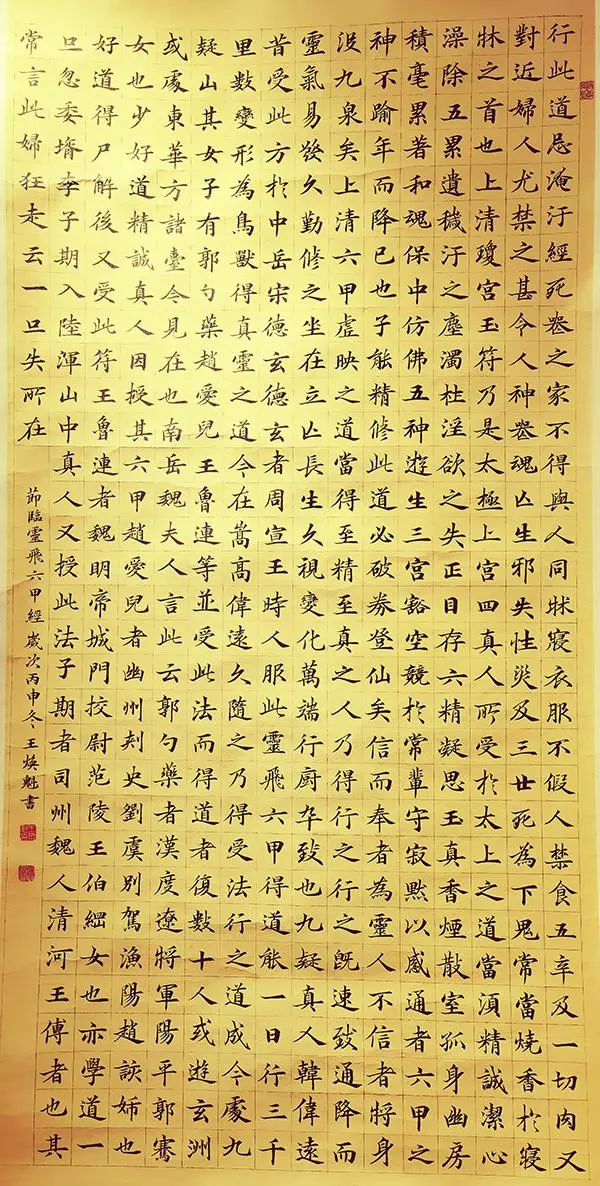 行此道忌淹汙經死喪之家不得與人同牀寢衣服不假人禁食五辛及一切肉又
對近婦人尤禁之甚令人神喪魂亡生邪失性災及三世死為下鬼常當燒香於寢
牀之首也上清瓊宮玉符乃是太極上宮四真人所受於太上之道當須精誠潔心
澡除五累遺穢汙之塵濁杜淫欲之失正目存六精凝思玉真香煙散室孤身幽房
積毫累著和魂保中仿佛五神遊生三宮豁空競於常輩守寂默以感通者六甲之
神不踰年而降已也子能精修此道必破券登仙矣信而奉者為靈人不信者將身
沒九泉矣上清六甲虛映之道當得至精至真之人乃得行之行之既速致通降而
靈氣易發久勤修之坐在立亡長生久視變化萬端行廚卒致也九疑真人韓偉遠
昔受此方於中岳宋德玄德玄者周宣王時人服此靈飛六甲得道能一日行三千
里數變形為鳥獸得真靈之道今在嵩高偉遠久隨之乃得受法行之道成今處九
疑山其女子有郭勺藥趙愛兒王魯連等並受此法而得道者復數十人或遊玄洲
或處東華方諸臺今見在也南岳魏夫人言此云郭勺藥者漢度遼將軍陽平郭騫
女也少好道精誠真人因授其六甲趙愛兒者幽州刾史劉虞別駕漁陽趙該姊也
好道得尸解後又受此符王魯連者魏明帝城門挍尉范陵王伯綱女也亦學道一
旦忽委壻李子期入陸渾山中真人又授此法子期者司州魏人清河王傅者也其
常言此婦狂走云一旦失所在
節臨靈飛六甲經歲次丙申冬王煥魁書